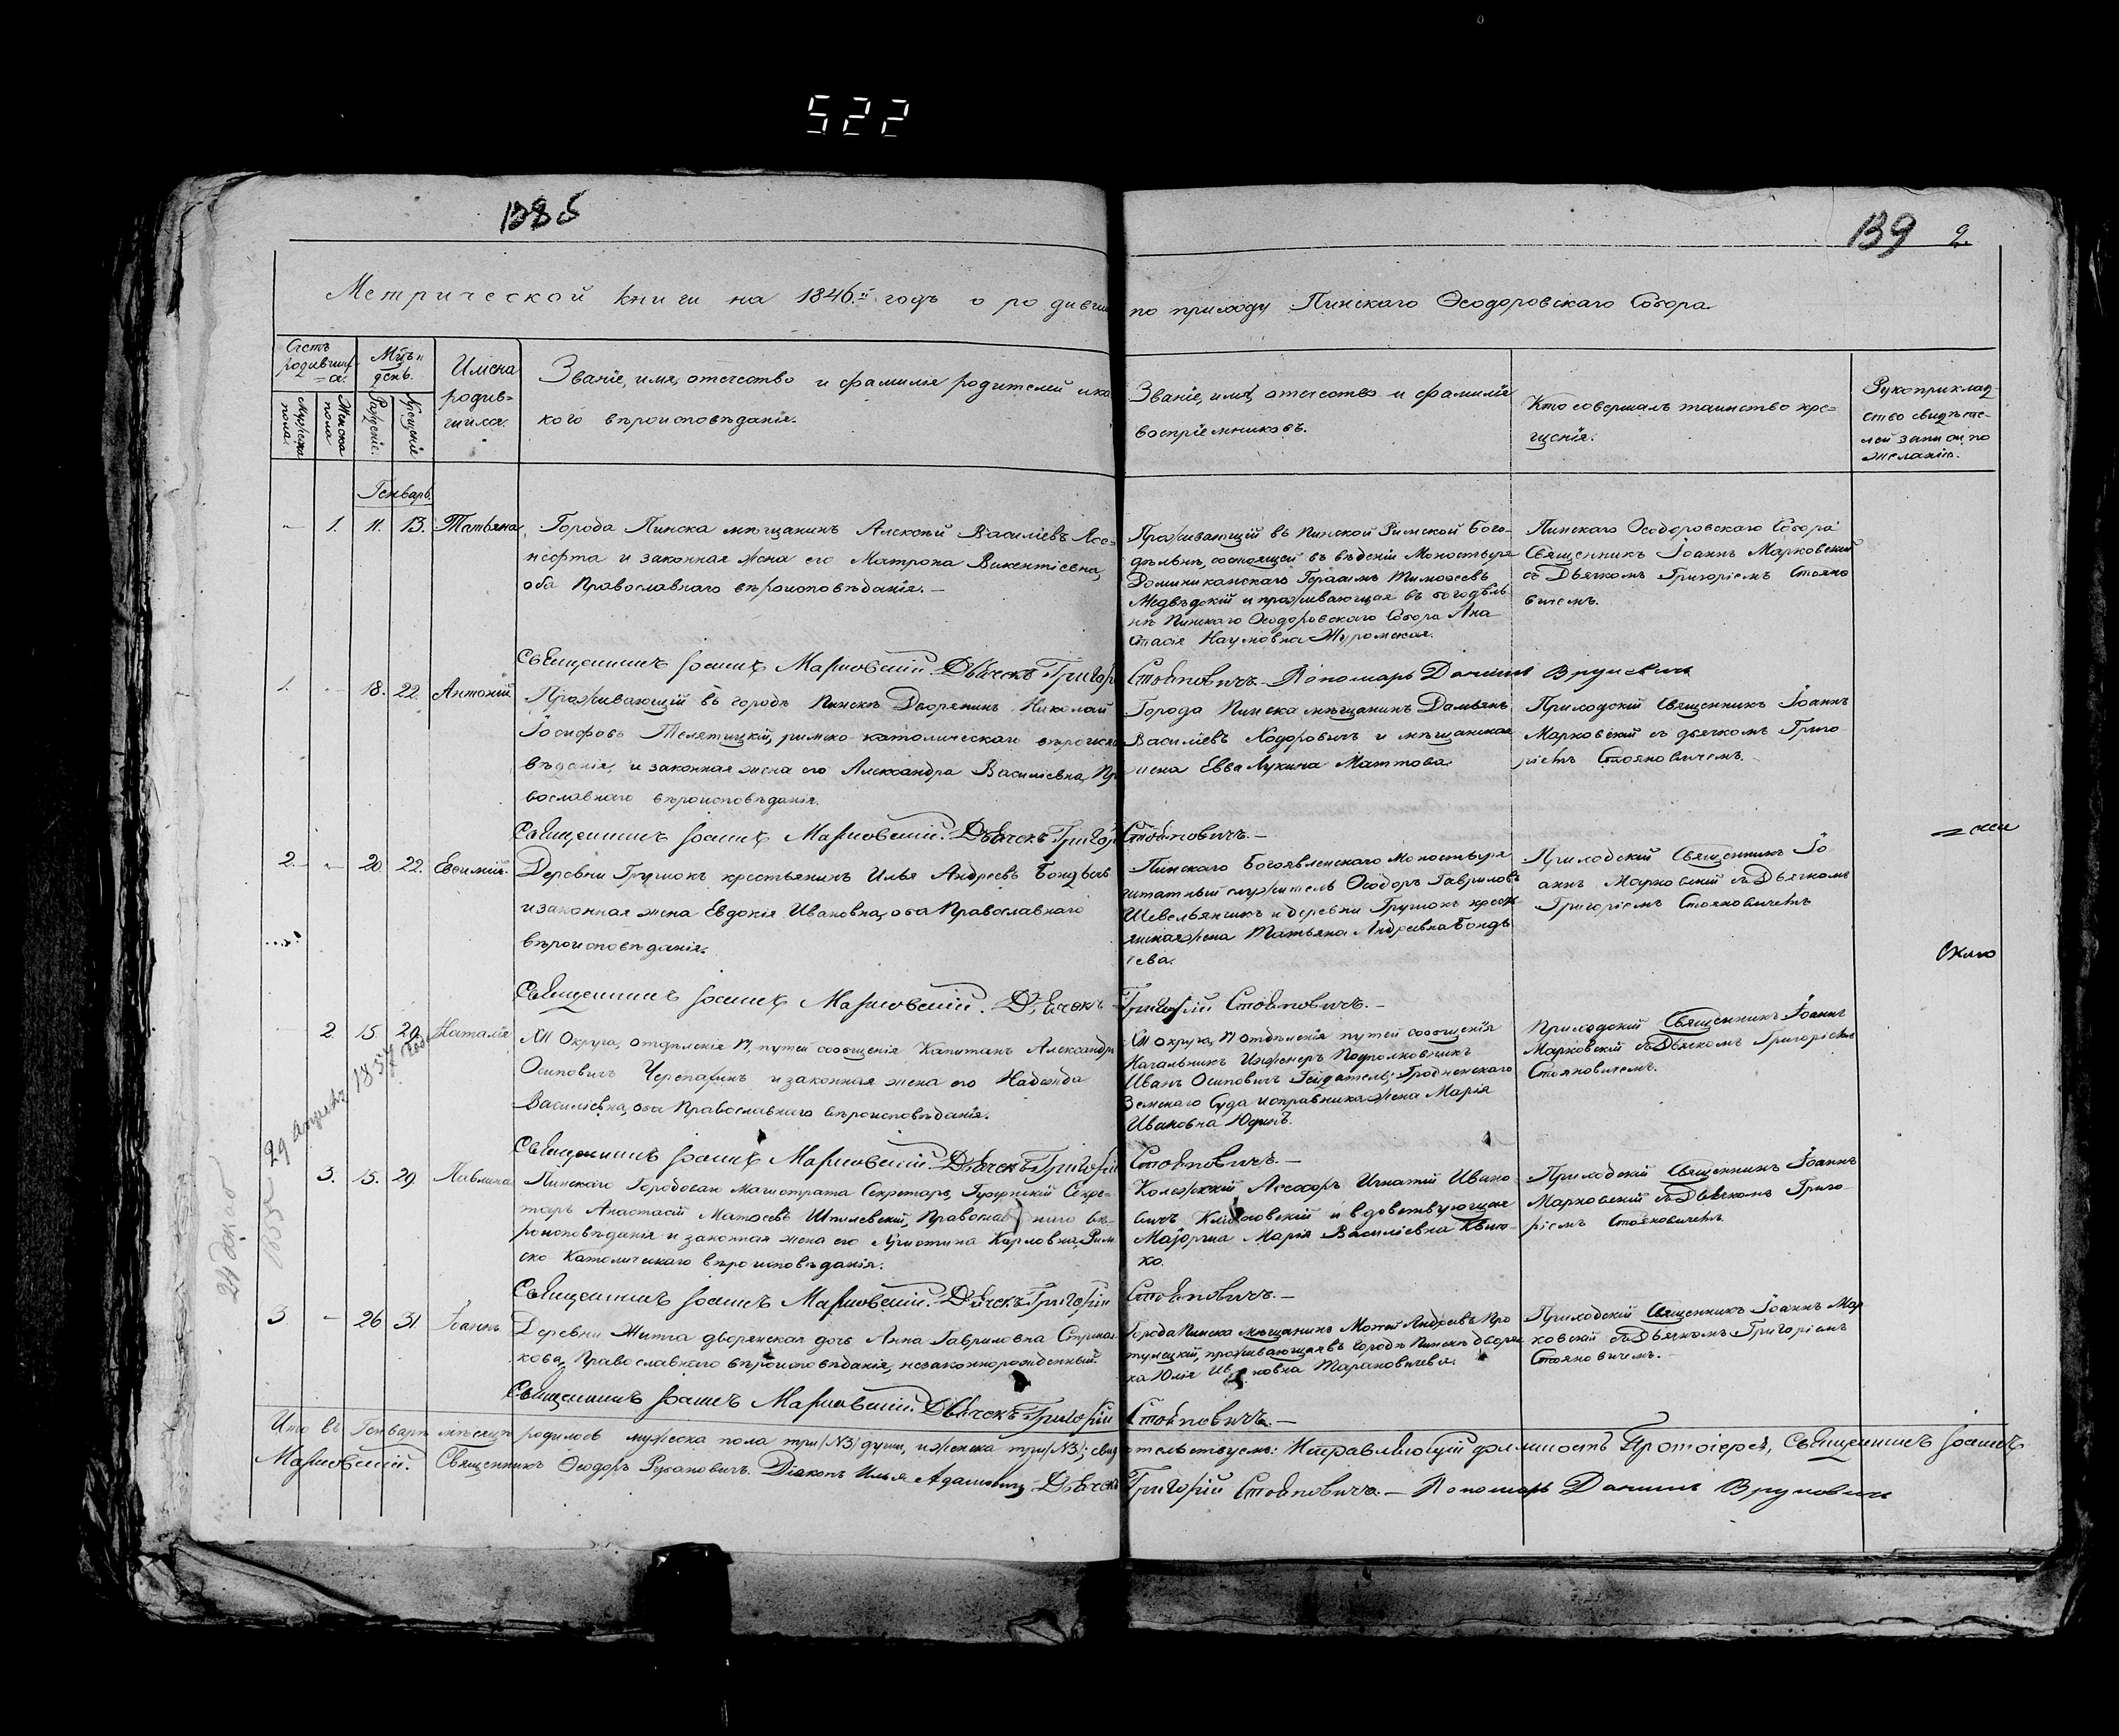 522
1385
139 2.
Метрической книги на 1846й годъ о родивши
по приходу Пинскаго Ѳеодоровскаго Собора.
Счетъ родившихся.
Мужеска пола.
Женска пола
Мѣц. и день.
Рожденіе.
Крещеніе
Имена родившихся.
Званіе, имя, отчество и фамилія родителей и ка
кого вѣроисповѣданія.
Званіе, имя, отчество и фамилія
воспріемниковъ.
Кто совершалъ таинство кре-
щенія.
Рукоприклад-
ство свидѣте-
лей записи по
желанію.
Генварь.
- 1. 11. 13. Татьяна
Города Пинска мѣщанинъ Алексѣй Василіевъ
и законная жена его Матрона Викентіевна,
оба Православнаго вѣроисповѣданія. —
Проживающій въ Пинской Римской Бого-
дѣльнѣ, состоящей въ вѣденіи Монастыря
Доминиканскаго Герасимъ Тимоѳеевъ
Медвѣдскій и проживающая въ богодѣль
нѣ Пинскаго Ѳеодоровскаго Собора Ана
стасія Наумовна Журомская.
Пинскаго Ѳеодоровскаго Собора
Священникъ Іоаннъ Марковскій
съ Дьячкомъ Григоріемъ Стояно
вичемъ.
Священникъ Іоаннъ Марковскій. Дьячекъ Григор
Стояновичъ. Пономарь Даніилъ
1. - 18. 22. Антоній.
Проживающій въ городѣ Пинскѣ Дворянинъ Николай
Іосифовъ Телятицкій, римско католическаго вѣроиспо
вѣданія, и законная жена его Александра Василіевна, Пр
вославнаго вѣроисповѣданія.
Города Пинска мѣщанинъ Дамьянъ
Василіевъ Ходоровичъ и мѣщанская
жена Евва Лукина Маттова.
Приходскій Священникъ Іоаннъ
Марковскій съ дьячкомъ Григо
ріемъ Стояновичемъ.
Священникъ Іоаннъ Марковскій. Дьячекъ Григор
Стояновичъ. —
2. - 20. 22. Евѳимій.
Деревни Грушокъ крестьянинъ Илья Андреевъ
и законная жена Евдокія Ивановна, оба Православнаго
вѣроисповѣданія.
Пинскаго Богоявленскаго Монастыря
штатный служитель Ѳеодоръ Гавриловъ
и деревни Грушокъ крест
янская жена Татьяна Андреевна Бонды
ева.
Приходскій Священникъ Іо-
аннъ Марковскій съ Дьячкомъ
Григоріемъ Стояновичемъ
Священникъ Іоаннъ Марковскій. Дьячекъ
Григорій Стояновичъ. —
- 2. 15. 29. Наталія
XII Округа, отдѣленія VI, путей сообщенія Капитанъ Александръ
Осиповичъ и законная жена его Надежда
Василіевна, оба Православнаго вѣроисповѣданія.
XII округа, VI отдѣленія путей сообщенія
Начальникъ Инженеръ Подполковникъ
Иванъ Осиповичъ Гродненскаго
Земскаго Суда исправника жена Марія
Ивановна
Приходскій Священникъ Іоаннъ
Марковскій съ Дьячкомъ Григоріемъ
Стояновичемъ.
Священникъ Іоаннъ Марковскій. Дьячекъ Григорій
Стояновичъ. —
3. 15. 29. Павлина
Пинскаго Городоваго Магистрата Секретарь, Губернскій Секре-
тарь Анастасій Матѳеевъ Шпилевскій, Православнаго вѣ-
роисповѣданія и законная жена его Карловна, Рим
ско Католическаго вѣроисповѣданія.
Колежскій Асесоръ Игнатій Ивано
вичъ и вдовствующая
Маіорша Марія Василіевна Квит-
ко.
Приходскій Священникъ Іоаннъ
Марковскій съ Дьячкомъ Григо-
ріемъ Стояновичемъ
Священникъ Іоаннъ Марковскій. Дьячекъ Григорій
Стояновичъ. —
3 - 26 31. Іоаннъ.
Деревни дворянская дочь Анна Гавриловна
кова, Православнаго вѣроисповѣданія, незаконнорожденный.
Города Пинска мѣщанинъ Матѳей Андреевъ
проживающая въ городѣ Пинскѣ дворян
ка Юлія Ивановна Тарановичева.
Приходскій Священникъ Іоаннъ Мар
ковскій съ Дьячкомъ Григоріемъ
Стояновичемъ. —
Священникъ Іоаннъ Марковскій. Дьячекъ Григорій
Стояновичъ. —
Что въ Генварѣ мѣсяцѣ родилось мужеска пола три (№3) души, и женска три (№3); свид
ѣтельствуемъ: Исправляющій должность Протоіерея, Священникъ Іоаннъ
Марковскій. Священникъ Ѳеодоръ Діаконъ Илья Адамовичъ Дьячекъ
Григорій Стояновичъ. — Пономарь Даніилъ